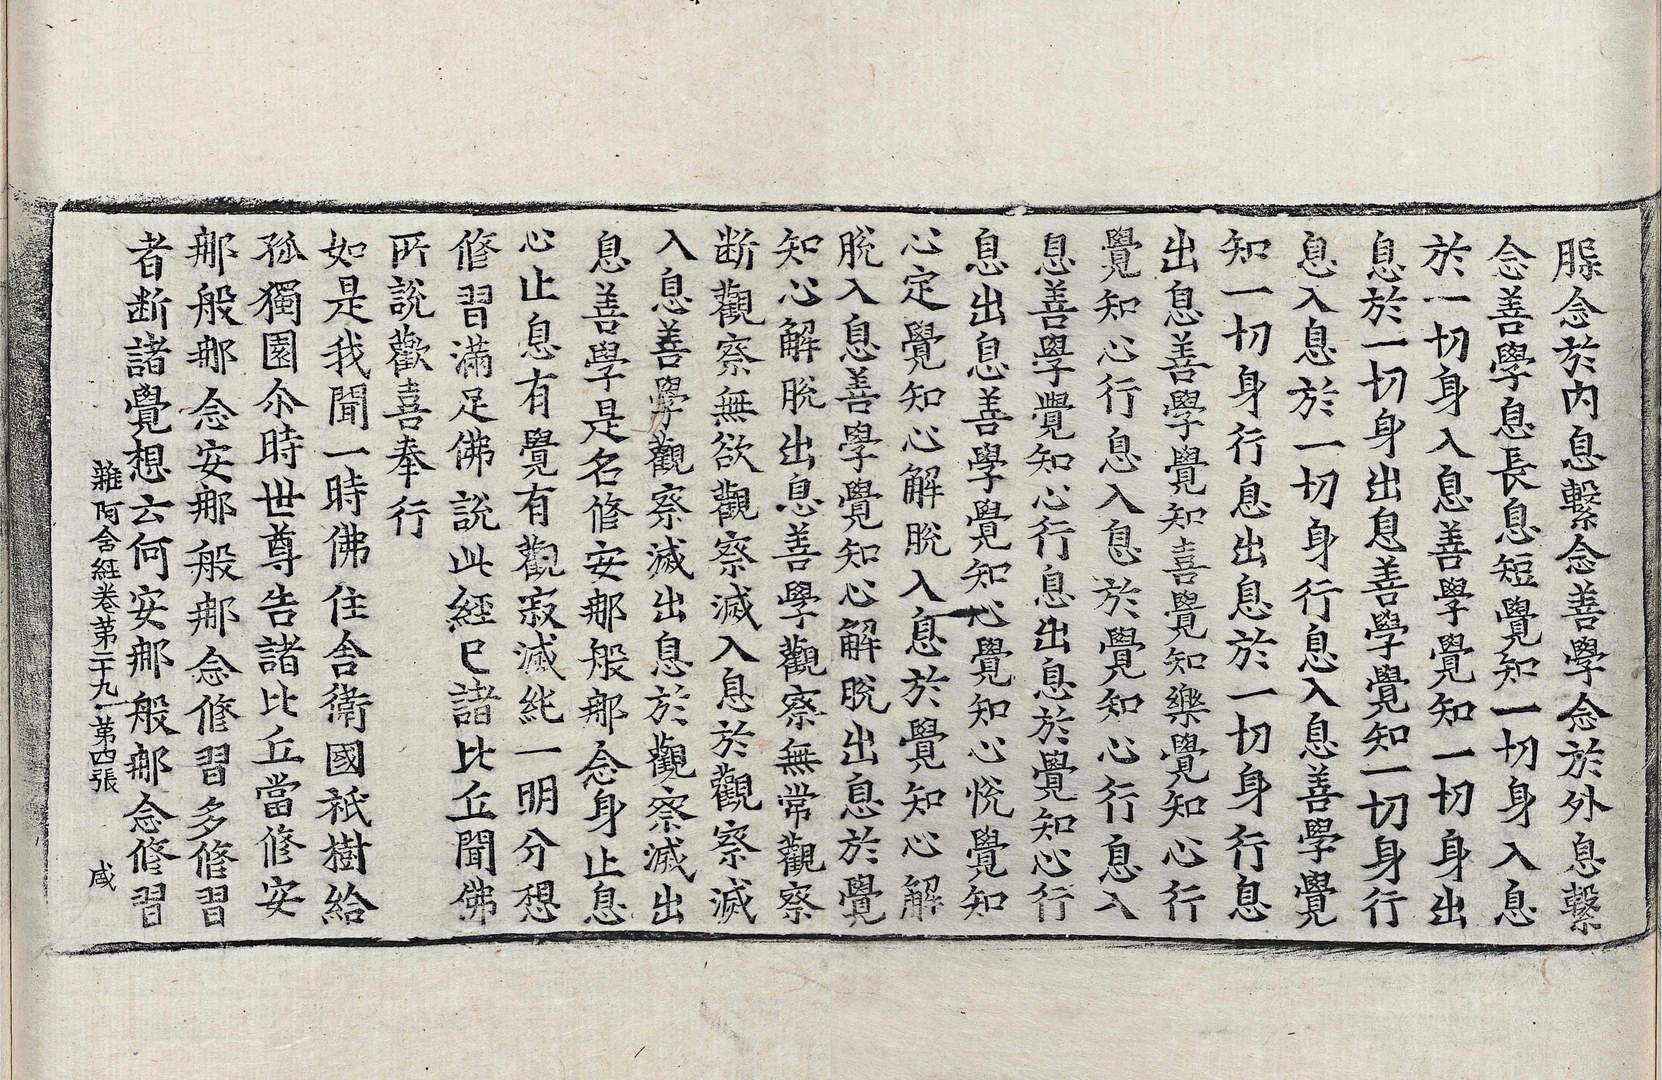 槃念於内息繫念善學念於外息繫
念善學息長息短覺知一切身入息
於一切身入息善學覺知一切身出
息於一切身出息善學覺知一切身行
息入息於一切身行息入息善學覺
知一切身行息出息於一切身行息
出息善學覺知喜覺知樂覺知心行
覺知心行息入息於覺知心行息入
息善學覺知心行息出息於覺知心行
息出息善學覺知心覺知心悅覺知
心定覺知心解脫入息於覺知心解
脫入息善學覺知心解脫出息於覺
知心解脫出息善學觀察無常觀察
断觀察無欲觀察滅入息於觀察滅
入息善學觀察滅出息於觀察滅出
息善學是名修安那般那念身止息
心止息有覺有觀寂滅純一明分想
修習滿足佛說此經已諸比丘聞佛
所說歡喜奉行
如是我聞一時佛住舍衛國祇樹給
孤獨園尒時世尊告諸比丘當修安
那般那念安那般那念修習多修習
者断諸覺想云何安那般那念修習
雜阿含經卷第二十九 第四張 咸